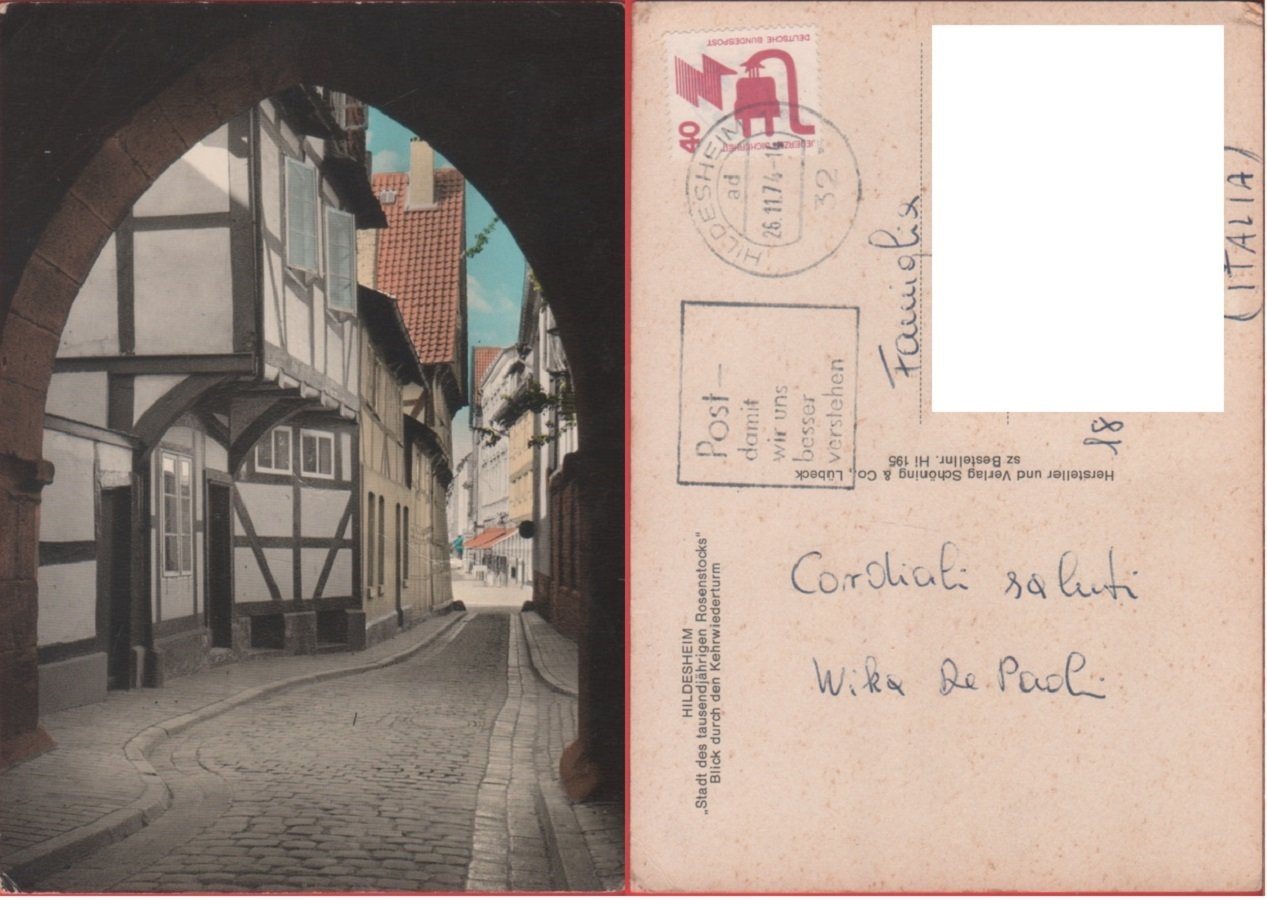 DEUTSCHE BUNDESPOST
40
JEDERZEIT SICHERHEIT
HILDESHEIM
ad
26.11.74-14
32
Post—
damit
wir uns
besser
verstehen
Famiglia
18
(ITALIA)
Hersteller und Verlag Schöning & Co., Lübeck
sz Bestellnr. Hi 195
HILDESHEIM
„Stadt des tausendjährigen Rosenstocks"
Blick durch den Kehrwiederturm
Cordiali saluti
Wika De Paoli